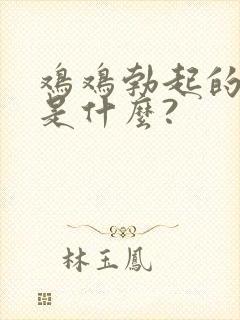 鸡鸡勃起的
是什麼?
林玉鳳